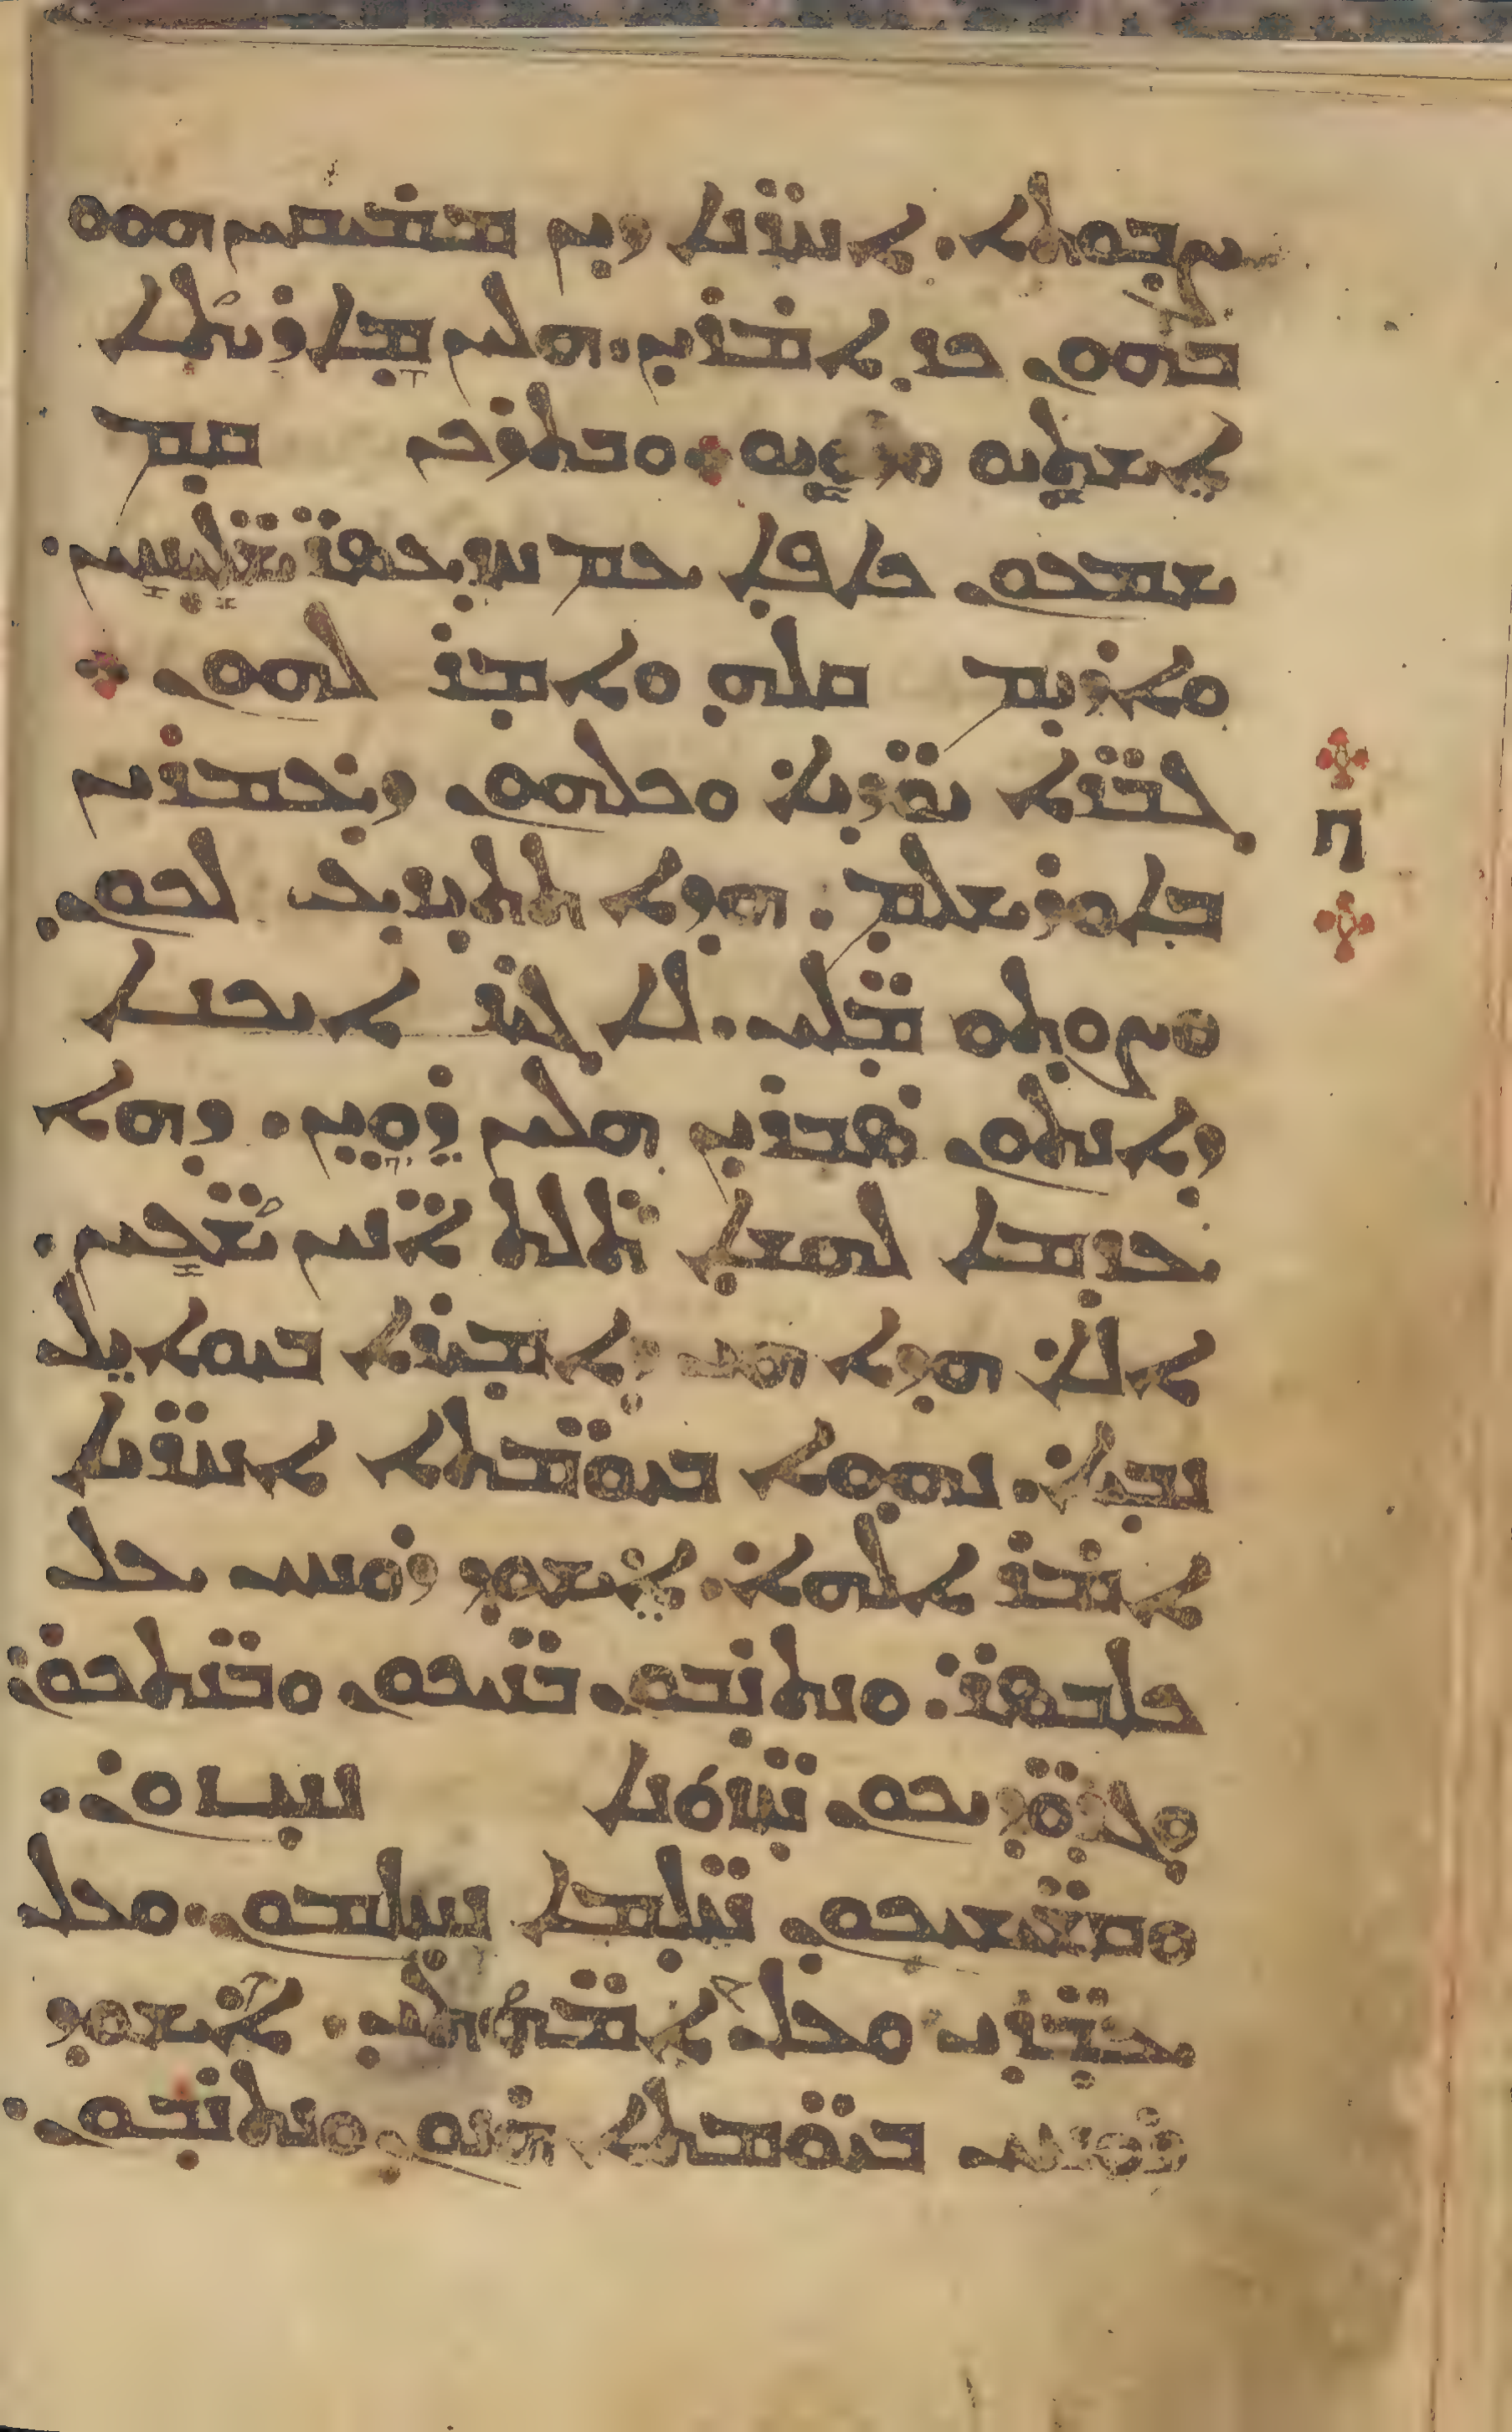 ܨܒܘܬܐ. ܐܚܪܢܐ ܕܝܢ ܡܡܝܩܝܢ ܗܘܘ
ܒܗܘܢ ܟܕ ܐܡܪܝܢ. ܗܠܝܢ ܡܐܪܝܬܐ
ܐܫܬܝܘ ܘܪܘܝܘ܀ ܘܒܬܪܟܢ ܩܡ
ܫܡܥܘܢ ܟܐܦܐ ܥܡ ܚܕܥܣܪ ܫܠܝܚܝܢ.
ܘܐܪܝܡ ܩܠܗ ܘܐܡܪ ܠܗܘܢ ܀
ܓܒܪܐ ܝܗܘܕܝܐ ܘܟܠܗܘܢ ܕܥܡܪܝܢ
ܒܐܘܪܫܠܡ: ܗܕܐ ܬܬܝܕܥ ܠܟܘܢ.
ܘܨܘܬܘ ܡܠܝ. ܠܐ ܓܝܪ ܐܝܟܢܐ
ܕܐܢܬܘܢ ܣܒܪܝܢ ܗܠܝܢ ܪܘܝܢ. ܕܗܐ
ܥܕܡܐ ܠܗܫܐ ܬܠܬ ܐܢܝܢ ܫܥܝܢ.
ܐܠܐ ܗܕܐ ܗܝ ܕܐܡܝܪܐ ܒܝܘܐܝܠ
ܢܒܝܐ. ܢܗܘܐ ܒܝܘܡܬܐ ܐܚܪܝܐ
ܐܡܪ ܐܠܗܐ. ܐܫܘܕ ܪܘܚܝ ܥܠ
ܟܠܒܣܪ. ܘܢܬܢܒܘܢ ܒܢܝܟܘܢ ܘܒܢܬܟܘܢ:
ܘܓܕܘܕܝܟܘܢ ܚܙܘܢܐ ܢܚܙܘܢ.
ܘܩܫܝܫܝܟܘܢ ܚܠܡܐ ܢܚܠܡܘܢ. ܘܥܠ
ܥܒܕܝ ܘܥܠ ܐܡܗܬܝ. ܐܫܘܕ
ܪܘܚܝ ܒܝܘܡܬܐ ܗܢܘܢ ܘܢܬܢܒܘܢ.